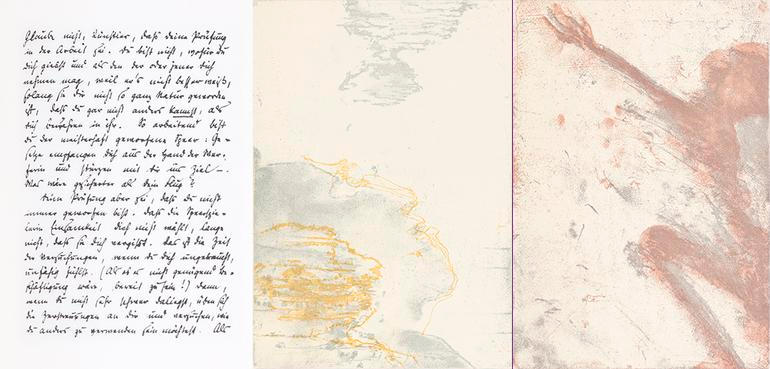 Glaube nicht, Künstler, daß deine Prüfung
in der Arbeit sei. Du bist nicht, wofür du
dich giebst und als den der oder jener dich
nehmen mag, weil er's nicht besser weiß,
solang sie dir nicht so ganz Natur geworden
ist, daß du gar nicht anders kannst, als
dich bewähren in ihr. So arbeitend bist
du der meisterhaft geworfene Speer: Ge-
setze empfangen dich aus der Hand der Wer-
ferin und stürzen mit dir ins Ziel —.
Was wäre gesicherter als dein Flug?
Deine Prüfung aber sei, daß du nicht
immer geworfen bist. Daß die Speerspie-
lerin Einsamkeit dich nicht wählt, lange
nicht, daß sie dich vergißt. Das ist die Zeit
der Versuchungen, wenn du dich ungebraucht,
unfähig fühlst. (Als ob es nicht genügend Be-
schäftigung wäre, bereit zu sein!) Dann,
wenn du nicht sehr schwer daliegst, üben sich
die Zerstreuungen an dir und versuchen, wie
du anders zu verwenden sein möchtest. Als